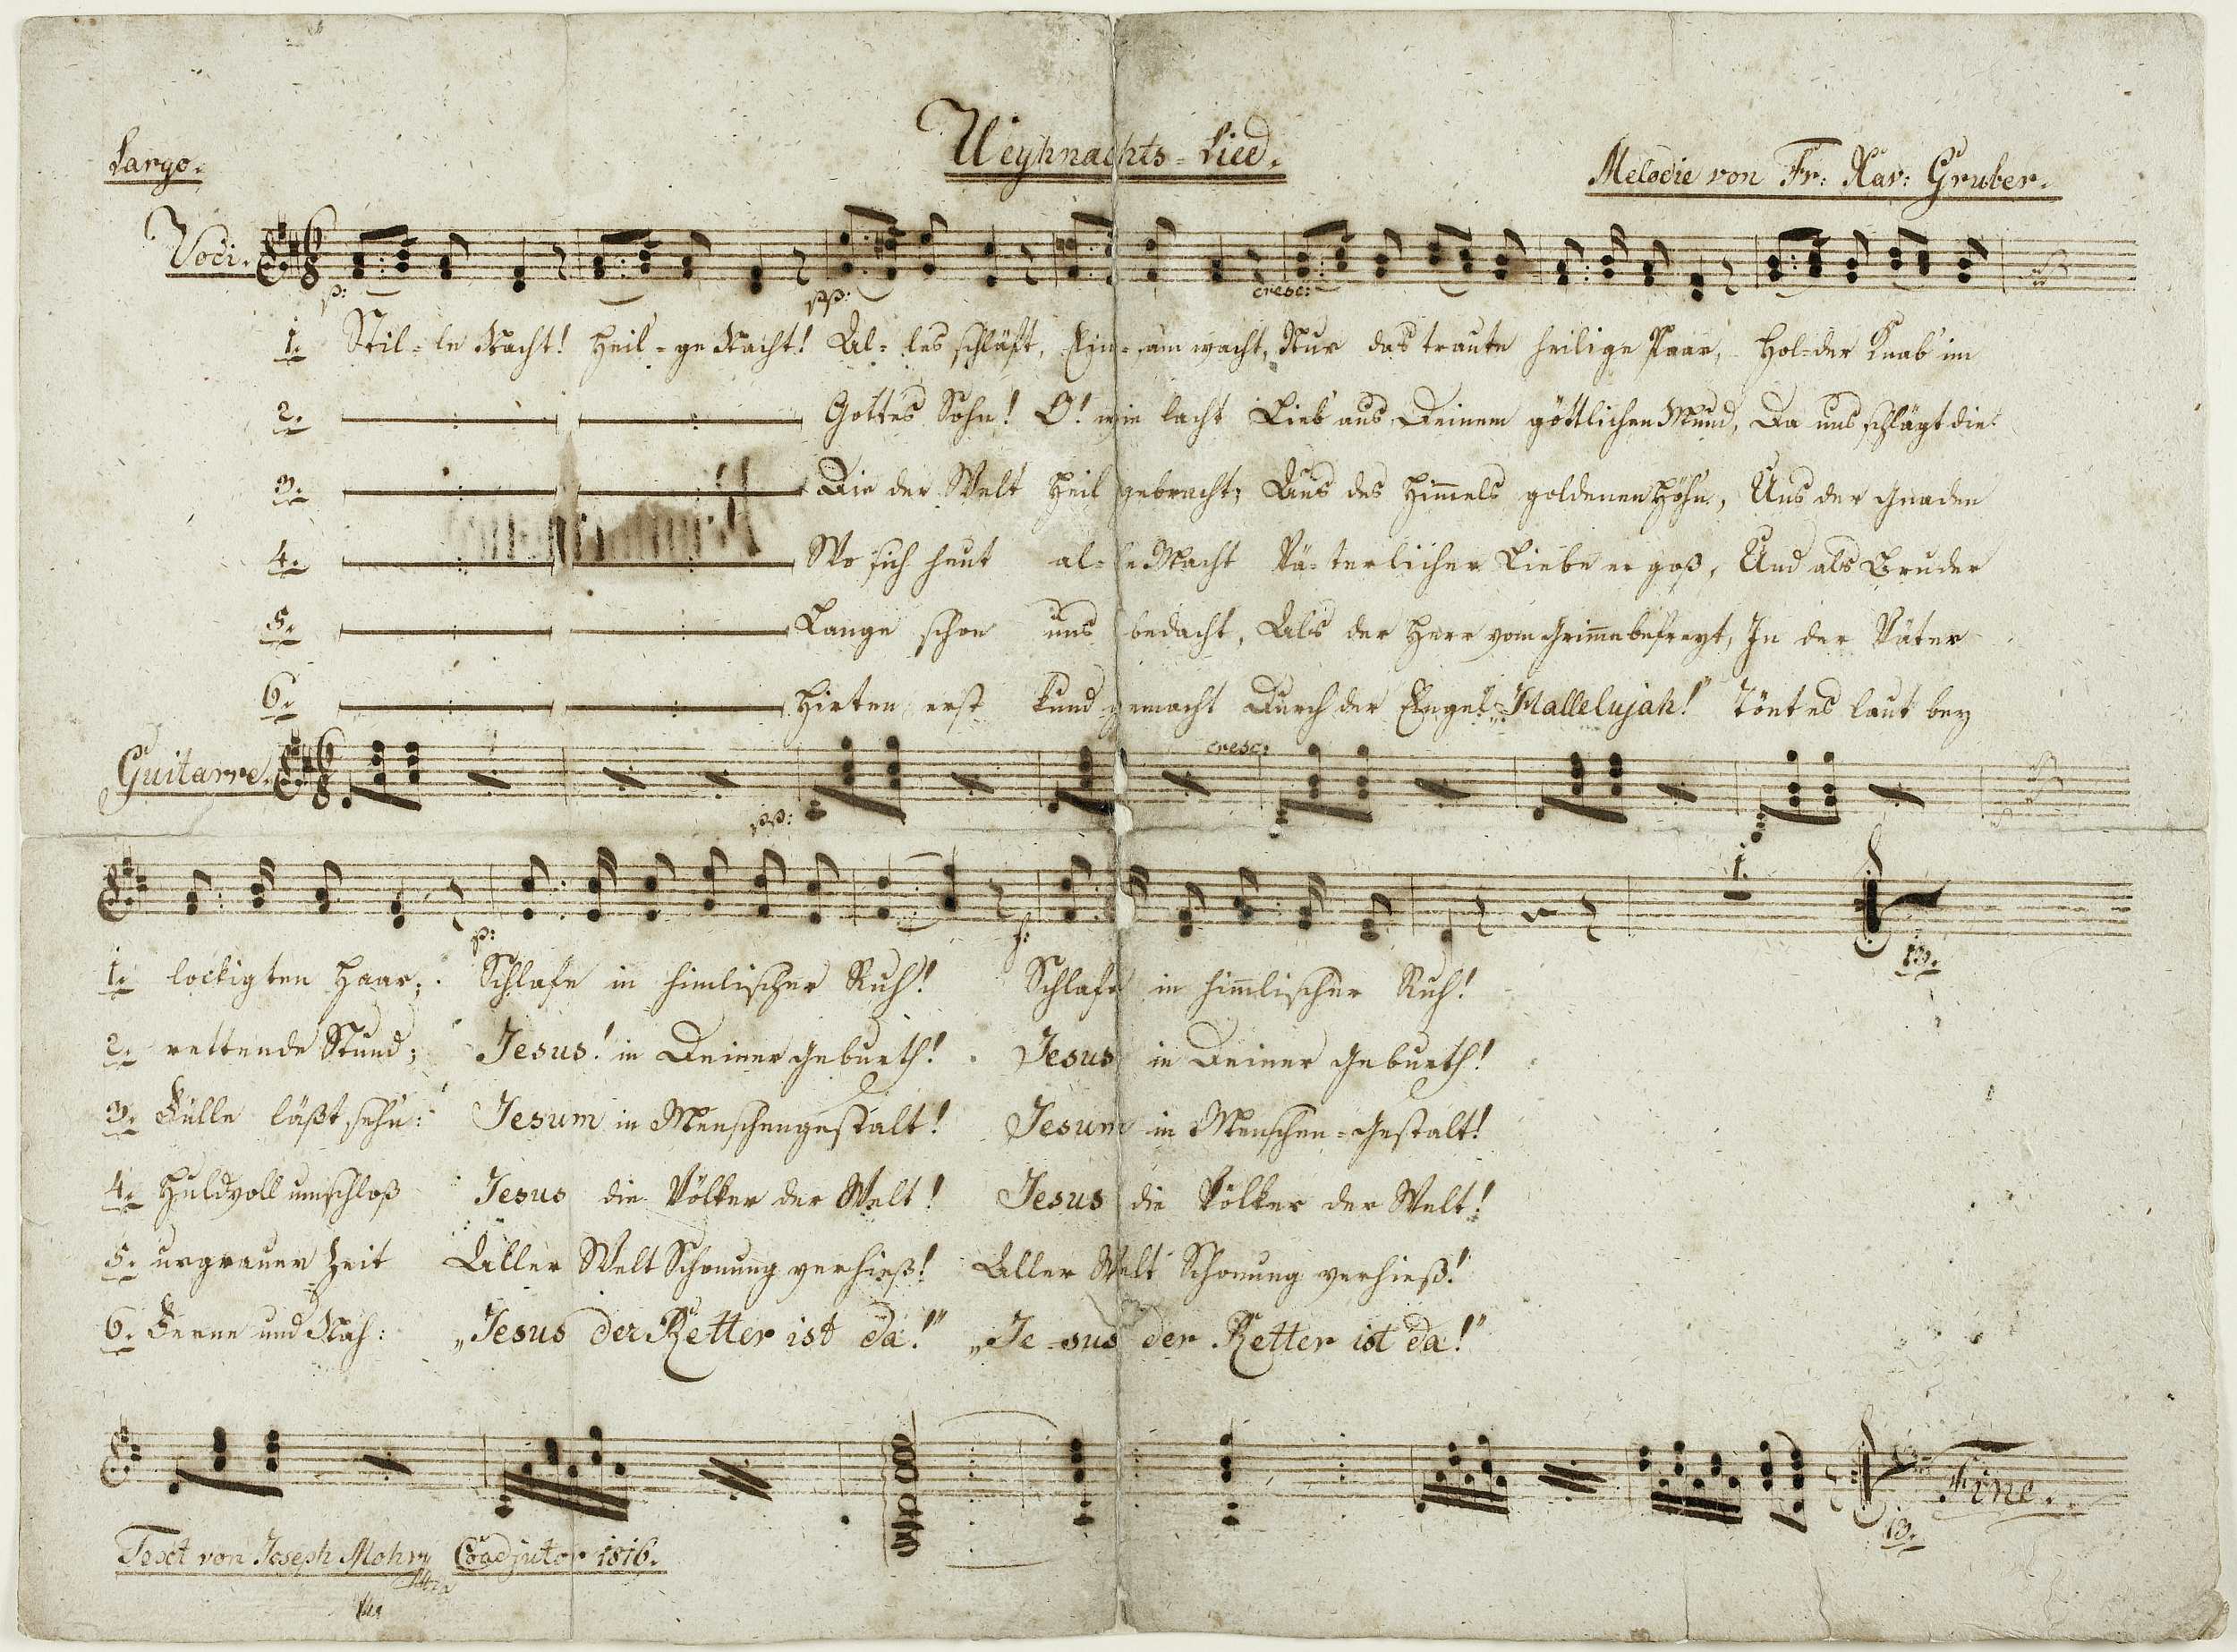 Weyhnachts-Lied.
Largo.
Melodie von Fr: Xav: Gruber.
Voci.
p: pp: cresc:
1. Stil-le Nacht! Heil-ge Nacht! Al-les schläft, Ein-sam wacht, Nur das traute heilige Paar, Hol-der Knab' im
2. Gottes Sohn! O! wie lacht Lieb' aus Deinem göttlichen Mund, Da uns schlägt die
3. Die der Welt Heil gebracht; Aus des Himmels goldenen Höhn, Uns der Gnaden
4. Wo sich heut al-le Macht Vä-terlicher Liebe ergoß, Und als Bruder
5. Lange schon uns bedacht, Als der Herr vom Grimme befreyt, In der Väter
6. Hirten erst kund gemacht Durch der Engel „Hallelujah!" Tönt es laut bey
Guitarre.
pp: cresc:
p: f:
1.
13.
1. lockigten Haar; Schlafe in himlischer Ruh! Schlafe in himmlischer Ruh!
2. rettende Stund; Jesus! in Deiner Geburth! Jesus in Deiner Geburth!
3. Fülle läßt sehn: Jesum in Menschengestalt! Jesum in Menschen-Gestalt!
4. Huldvoll umschloß Jesus die Völker der Welt! Jesus die Völker der Welt!
5. urgrauer Zeit Aller Welt Schonung verhieß! Aller Welt Schonung verhieß!
6. Ferne und Nah: „Jesus der Retter ist da!" „Je-sus der Retter ist da!"
Fine.
13.
Text von Joseph Mohr Coadjutor 1816.